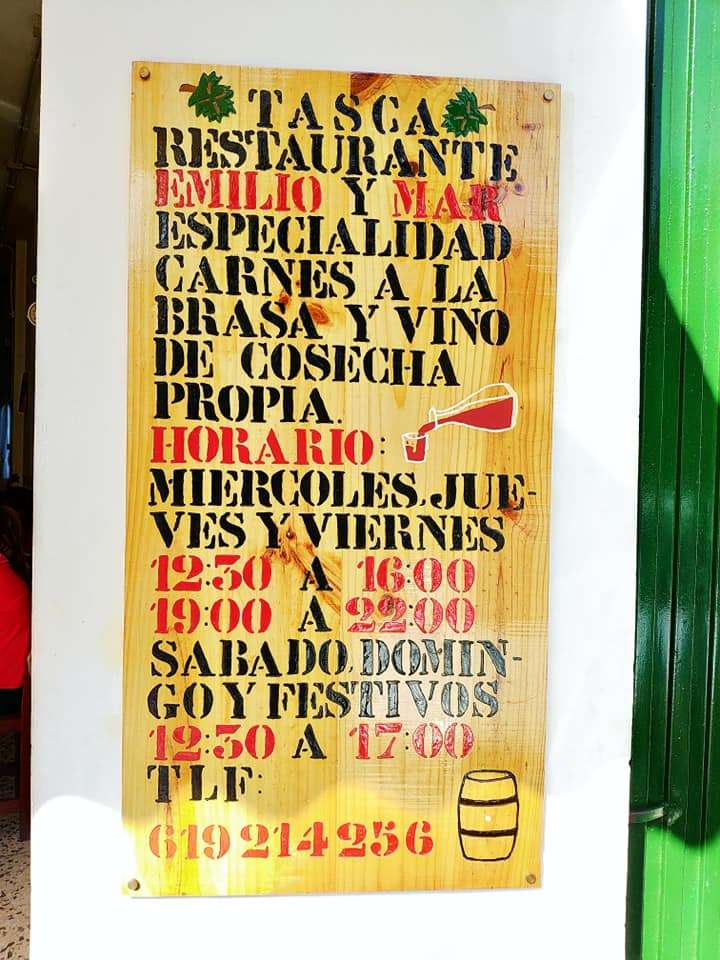 TASCA
RESTAURANTE
EMILIO Y MAR
ESPECIALIDAD
CARNES A LA
BRASA Y VINO
DE COSECHA
PROPIA.
HORARIO:
MIERCOLES, JUE-
VES Y VIERNES
12:30 A 16:00
19:00 A 22:00
SABADO, DOMIN-
GO Y FESTIVOS
12:30 A 17:00
TLF:
619 214 256